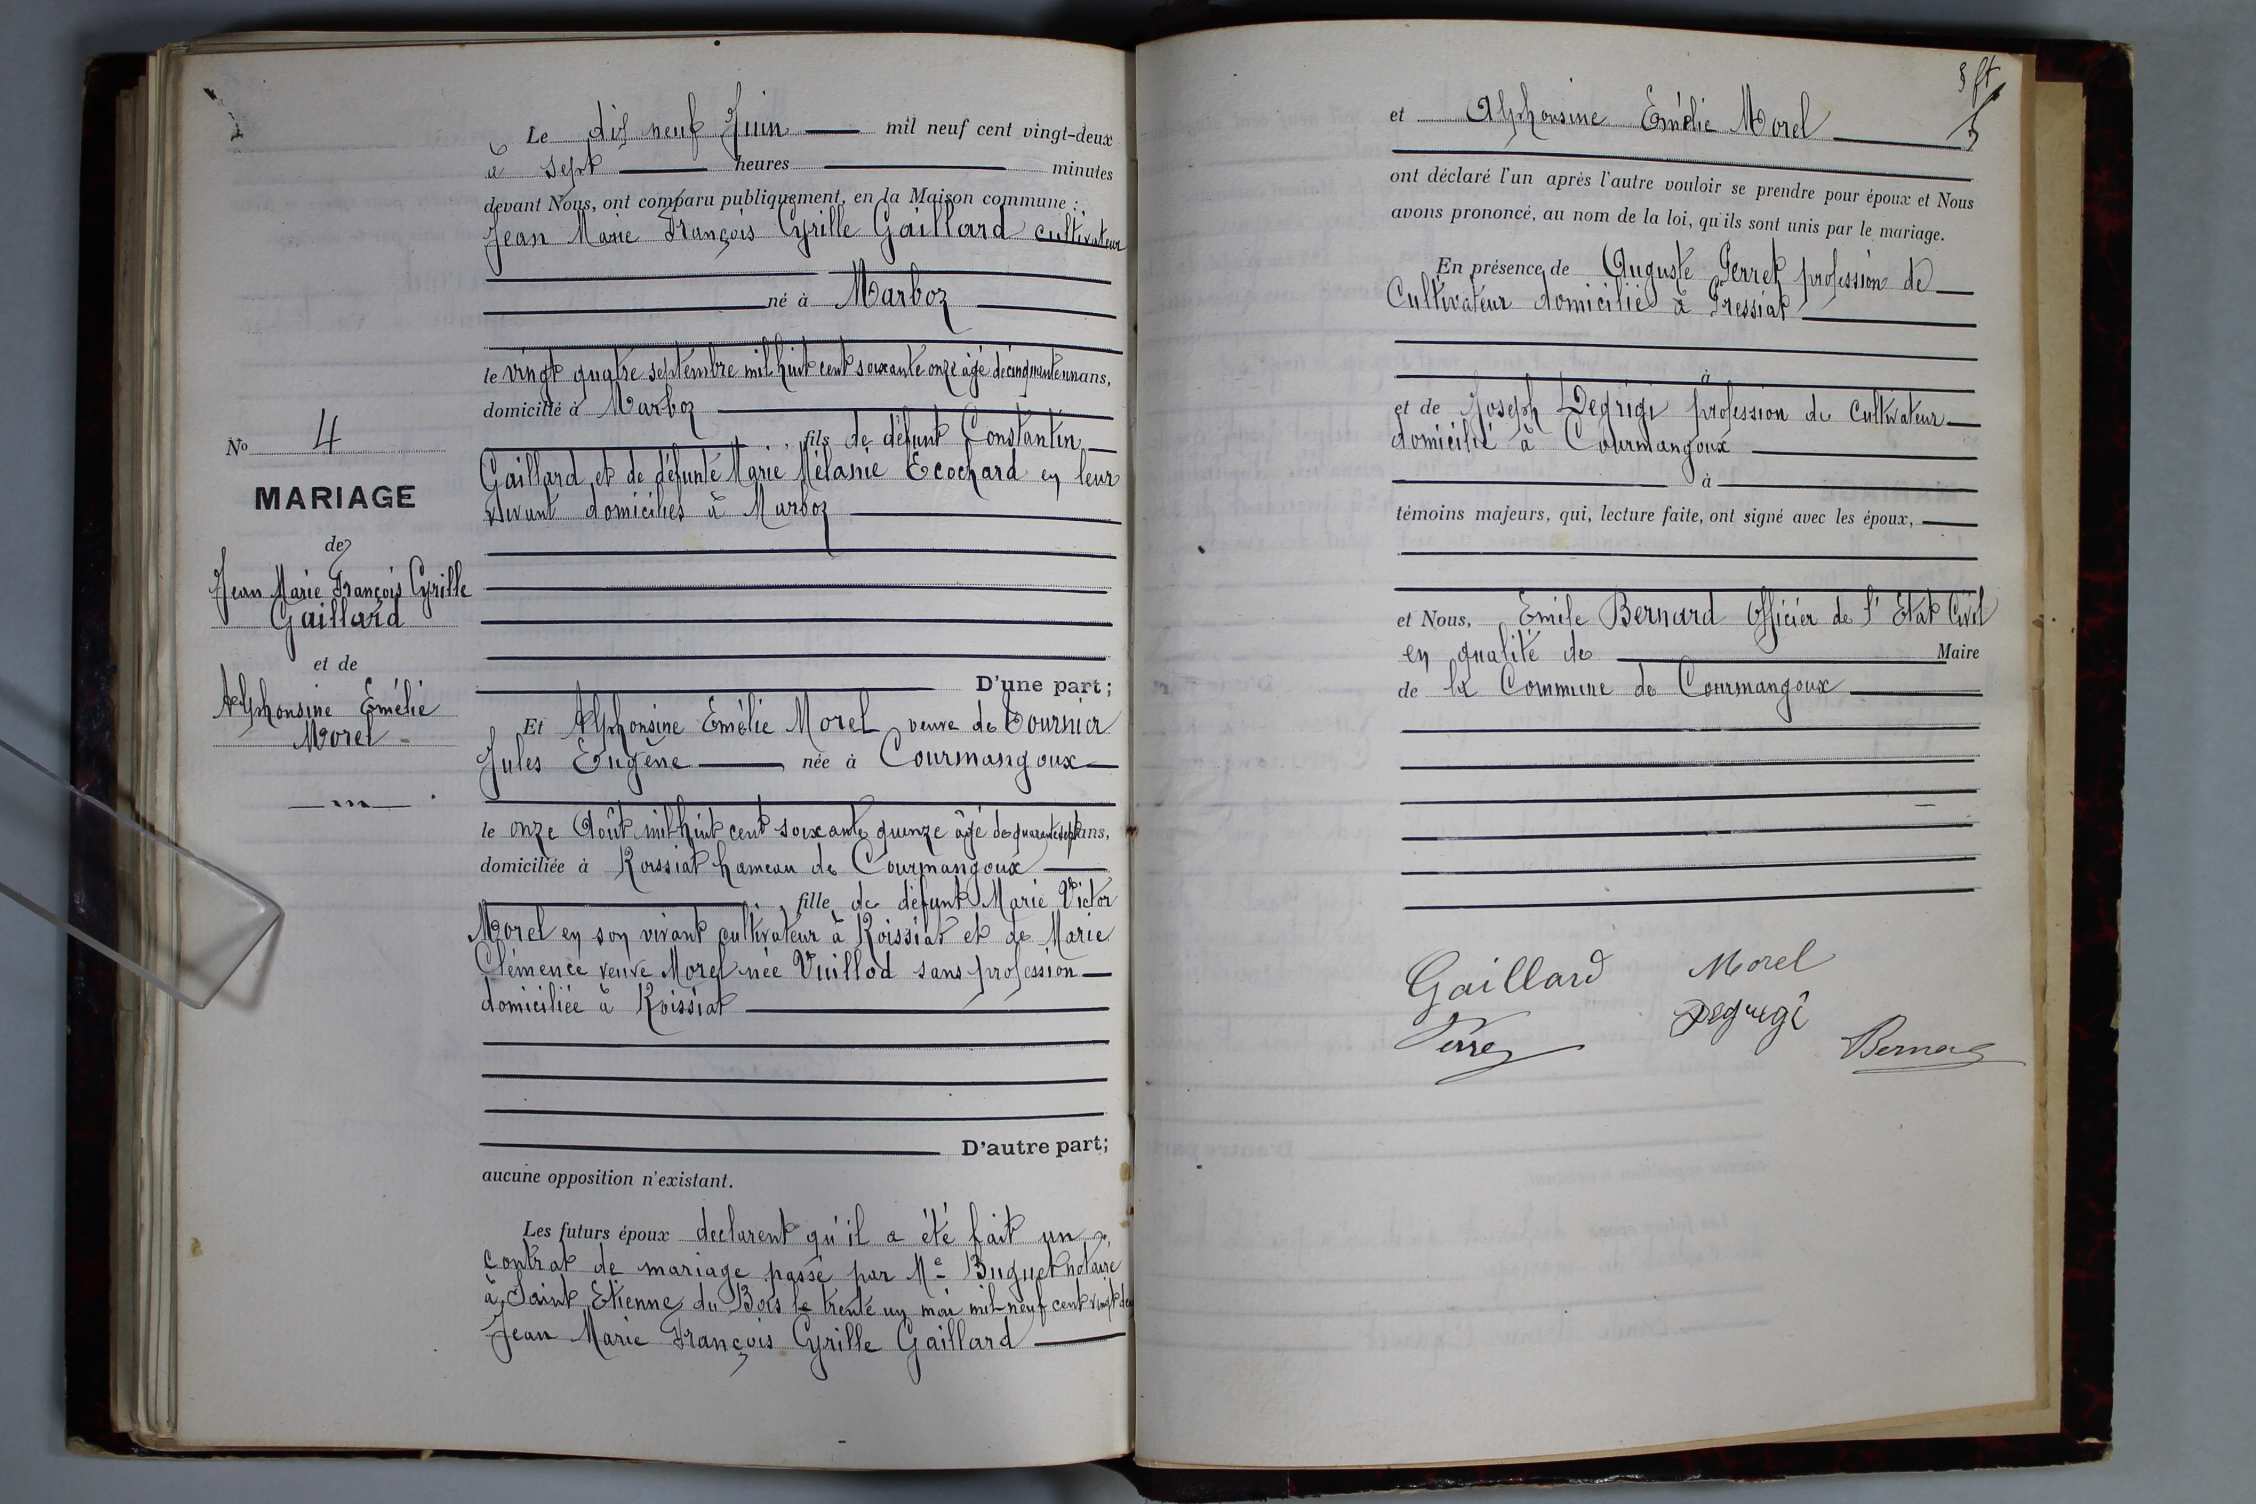 Le dix neuf Juin mil neuf cent vingt-deux
à sept heures minutes
devant Nous, ont comparu publiquement, en la Maison commune :
Jean Marie François Cyrille Gaillard cultivateur
né à Marboz
le vingt quatre septembre mil huit cent soixante onze âgé de cinquante un ans,
domicilié à Marboz
fils de défunt Constantin
Gaillard et de défunte Marie Mélanie Ecochard en leur
vivant domiciliés à Marboz
No 4
MARIAGE
de
Jean Marie François Cyrille
Gaillard
et de
Alphonsine Emélie
Morel
D'une part;
Et Alphonsine Emélie Morel veuve de Tournier
Jules Eugène née à Courmangoux
le onze Août mil huit cent soixante quinze âgé de quarante sept ans,
domiciliée à Roissiat hameau de Courmangoux
fille de défunt Marie Victor
Morel en son vivant cultivateur à Roissiat et de Marie
Clémence veuve Morel née Vuillod sans profession
domiciliée à Roissiat
D'autre part;
aucune opposition n'existant.
Les futurs époux declarent qu'il a été fait un
contrat de mariage passé par Me Buguet notaire
à Saint Etienne du Bois le trente un mai mil neuf cent vingt deux
Jean Marie François Cyrille Gaillard
et Alphonsine Emélie Morel
ont déclaré l'un après l'autre vouloir se prendre pour époux et Nous
avons prononcé, au nom de la loi, qu'ils sont unis par le mariage.
En présence de Auguste Perret profession de
Cultivateur domicilié à Pressiat
et de Joseph Degrigi profession de cultivateur
domicilié à Courmangoux
à
témoins majeurs, qui, lecture faite, ont signé avec les époux,
et Nous, Emile Bernard Officier de l'Etat Civil
en qualité de Maire
de la Commune de Courmangoux
Gaillard Morel
Perret Degrigi
Bernard